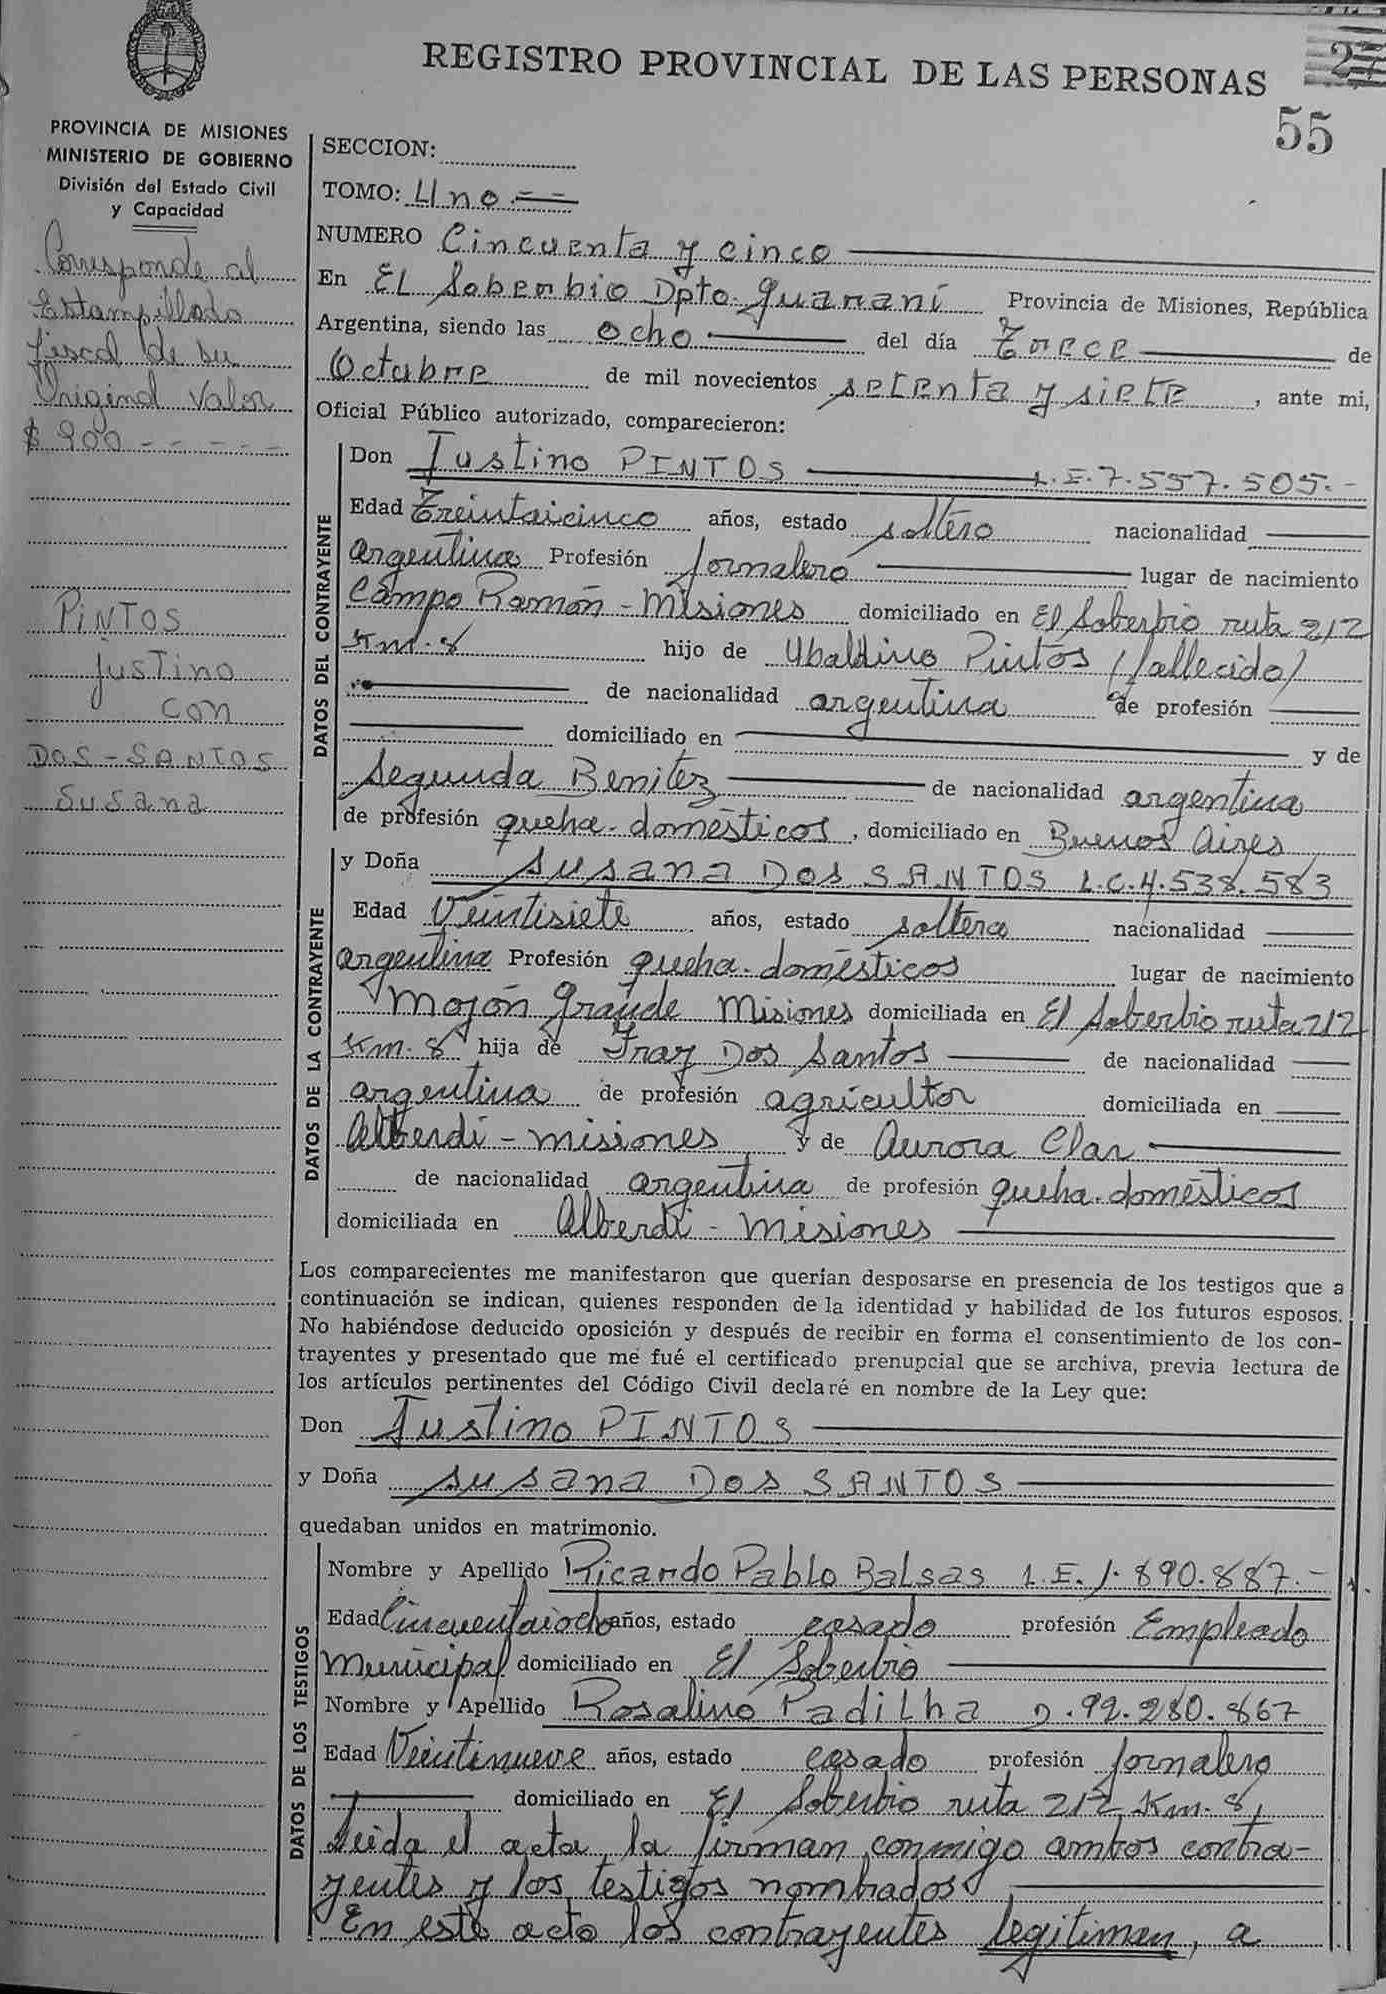 REGISTRO PROVINCIAL DE LAS PERSONAS
27
55
PROVINCIA DE MISIONES
MINISTERIO DE GOBIERNO
División del Estado Civil
y Capacidad
Corresponde al
Estampillado
fiscal de su
Original Valor
$ 900 - - - - -
PINTOS
Justino
con
DOS-SANTOS
Susana
SECCION:
TOMO: Uno.==
NUMERO Cincuenta y cinco
En El Soberbio Dpto. Guaraní Provincia de Misiones, República
Argentina, siendo las ocho del día Trece de
Octubre de mil novecientos setenta y siete, ante mi,
Oficial Público autorizado, comparecieron:
DATOS DEL CONTRAYENTE
Don Justino PINTOS L.E.7.557.505.-
Edad Treintaicinco años, estado soltero nacionalidad
argentina Profesión jornalero lugar de nacimiento
Campo Ramón - Misiones domiciliado en El Soberbio ruta 212
Km. 8 hijo de Ubaldino Pintos (fallecido)
de nacionalidad argentina de profesión
domiciliado en y de
Segunda Benitez de nacionalidad argentina
de profesión queha. domésticos, domiciliado en Buenos Aires
DATOS DE LA CONTRAYENTE
y Doña Susana DOS SANTOS L.C.4.538.583
Edad Veintisiete años, estado soltera nacionalidad
argentina Profesión queha. domésticos lugar de nacimiento
Mojón Grande Misiones domiciliada en El Soberbio ruta 212
Km. 8 hija de Fray Dos Santos de nacionalidad
argentina de profesión agricultor domiciliada en
Alberdi - misiones y de Aurora Clar
de nacionalidad argentina de profesión queha. domésticos
domiciliada en Alberdi - misiones
Los comparecientes me manifestaron que querían desposarse en presencia de los testigos que a
continuación se indican, quienes responden de la identidad y habilidad de los futuros esposos.
No habiéndose deducido oposición y después de recibir en forma el consentimiento de los con-
trayentes y presentado que me fué el certificado prenupcial que se archiva, previa lectura de
los artículos pertinentes del Código Civil declaré en nombre de la Ley que:
Don Justino PINTOS
y Doña Susana DOS SANTOS
quedaban unidos en matrimonio.
DATOS DE LOS TESTIGOS
Nombre y Apellido Ricardo Pablo Balsas L.E. 1.890.887.-
Edad Cincuentaiocho años, estado casado profesión Empleado
Municipal domiciliado en El Soberbio
Nombre y Apellido Rosalino Padilha D.92.280.867
Edad Veintinueve años, estado casado profesión jornalero
domiciliado en El Soberbio ruta 212 Km. 8,
Leida el acta, la firman conmigo ambos contra-
yentes y los testigos nombrados
En este acto los contrayentes legitiman, a